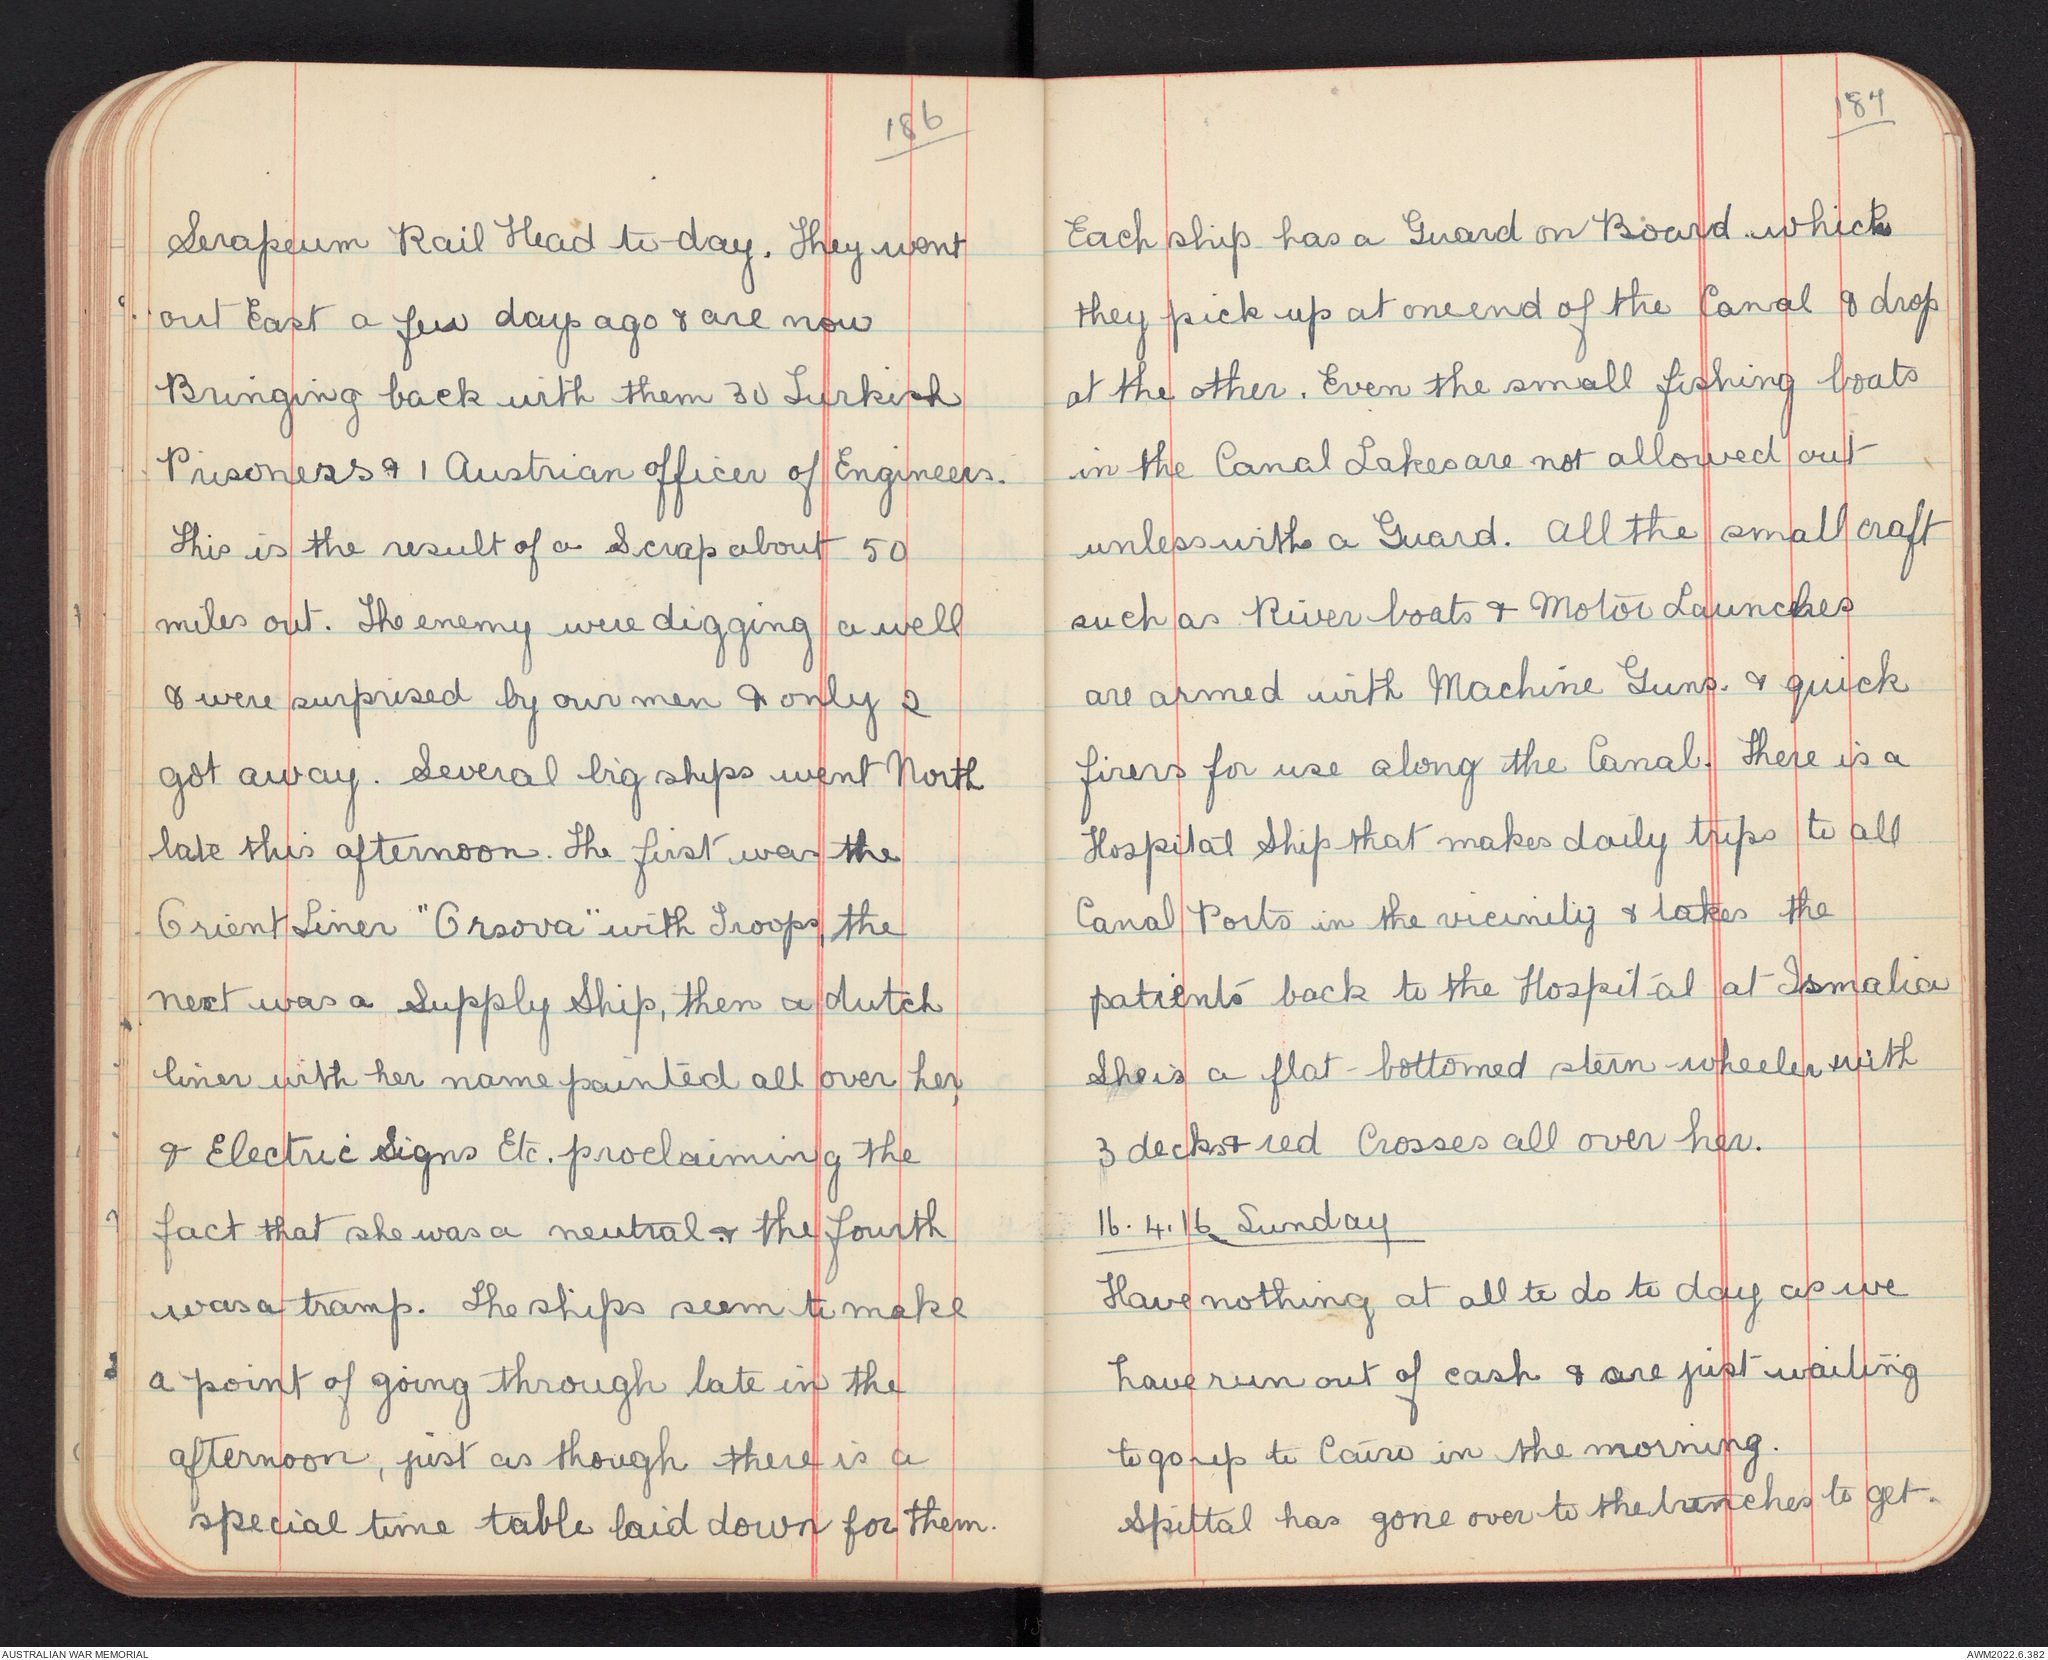 186
Serapeum Rail Head to-day. They went
out East a few days ago & are now
Bringing back with them 30 Turkish
Prisoners & 1 Austrian officer of Engineers.
This is the result of a Scrap about 50
miles out. The enemy were digging a well
& were surprised by our men & only 2
got away. Several big ships went North
late this afternoon. The first was the
Orient Liner "Orsova" with Troops, the
next was a Supply Ship, then a dutch
liner with her name painted all over her,
& Electric Signs Etc. proclaiming the
fact that she was a neutral & the fourth
was a tramp. The ships seem to make
a point of going through late in the
afternoon, just as though there is a
special time table laid down for them.
187
Each ship has a Guard on Board which
they pick up at one end of the Canal & drop
at the other. Even the small fishing boats
in the Canal Lakes are not allowed out
unless with a Guard. All the small craft
such as River boats & Motor Launches
are armed with Machine Guns. & quick
firers for use along the Canal. There is a
Hospital Ship that makes daily trips to all
Canal Ports in the vicinity & takes the
patients back to the Hospital at Ismalia
She is a flat-bottomed stern-wheeler with
3 decks & red Crosses all over her.
16.4.16 Sunday
Have nothing at all to do to day as we
have run out of cash & are just waiting
to go up to Cairo in the morning.
Spittal has gone over to the trenches to get.
AUSTRALIAN WAR MEMORIAL
AWM2022.6.382